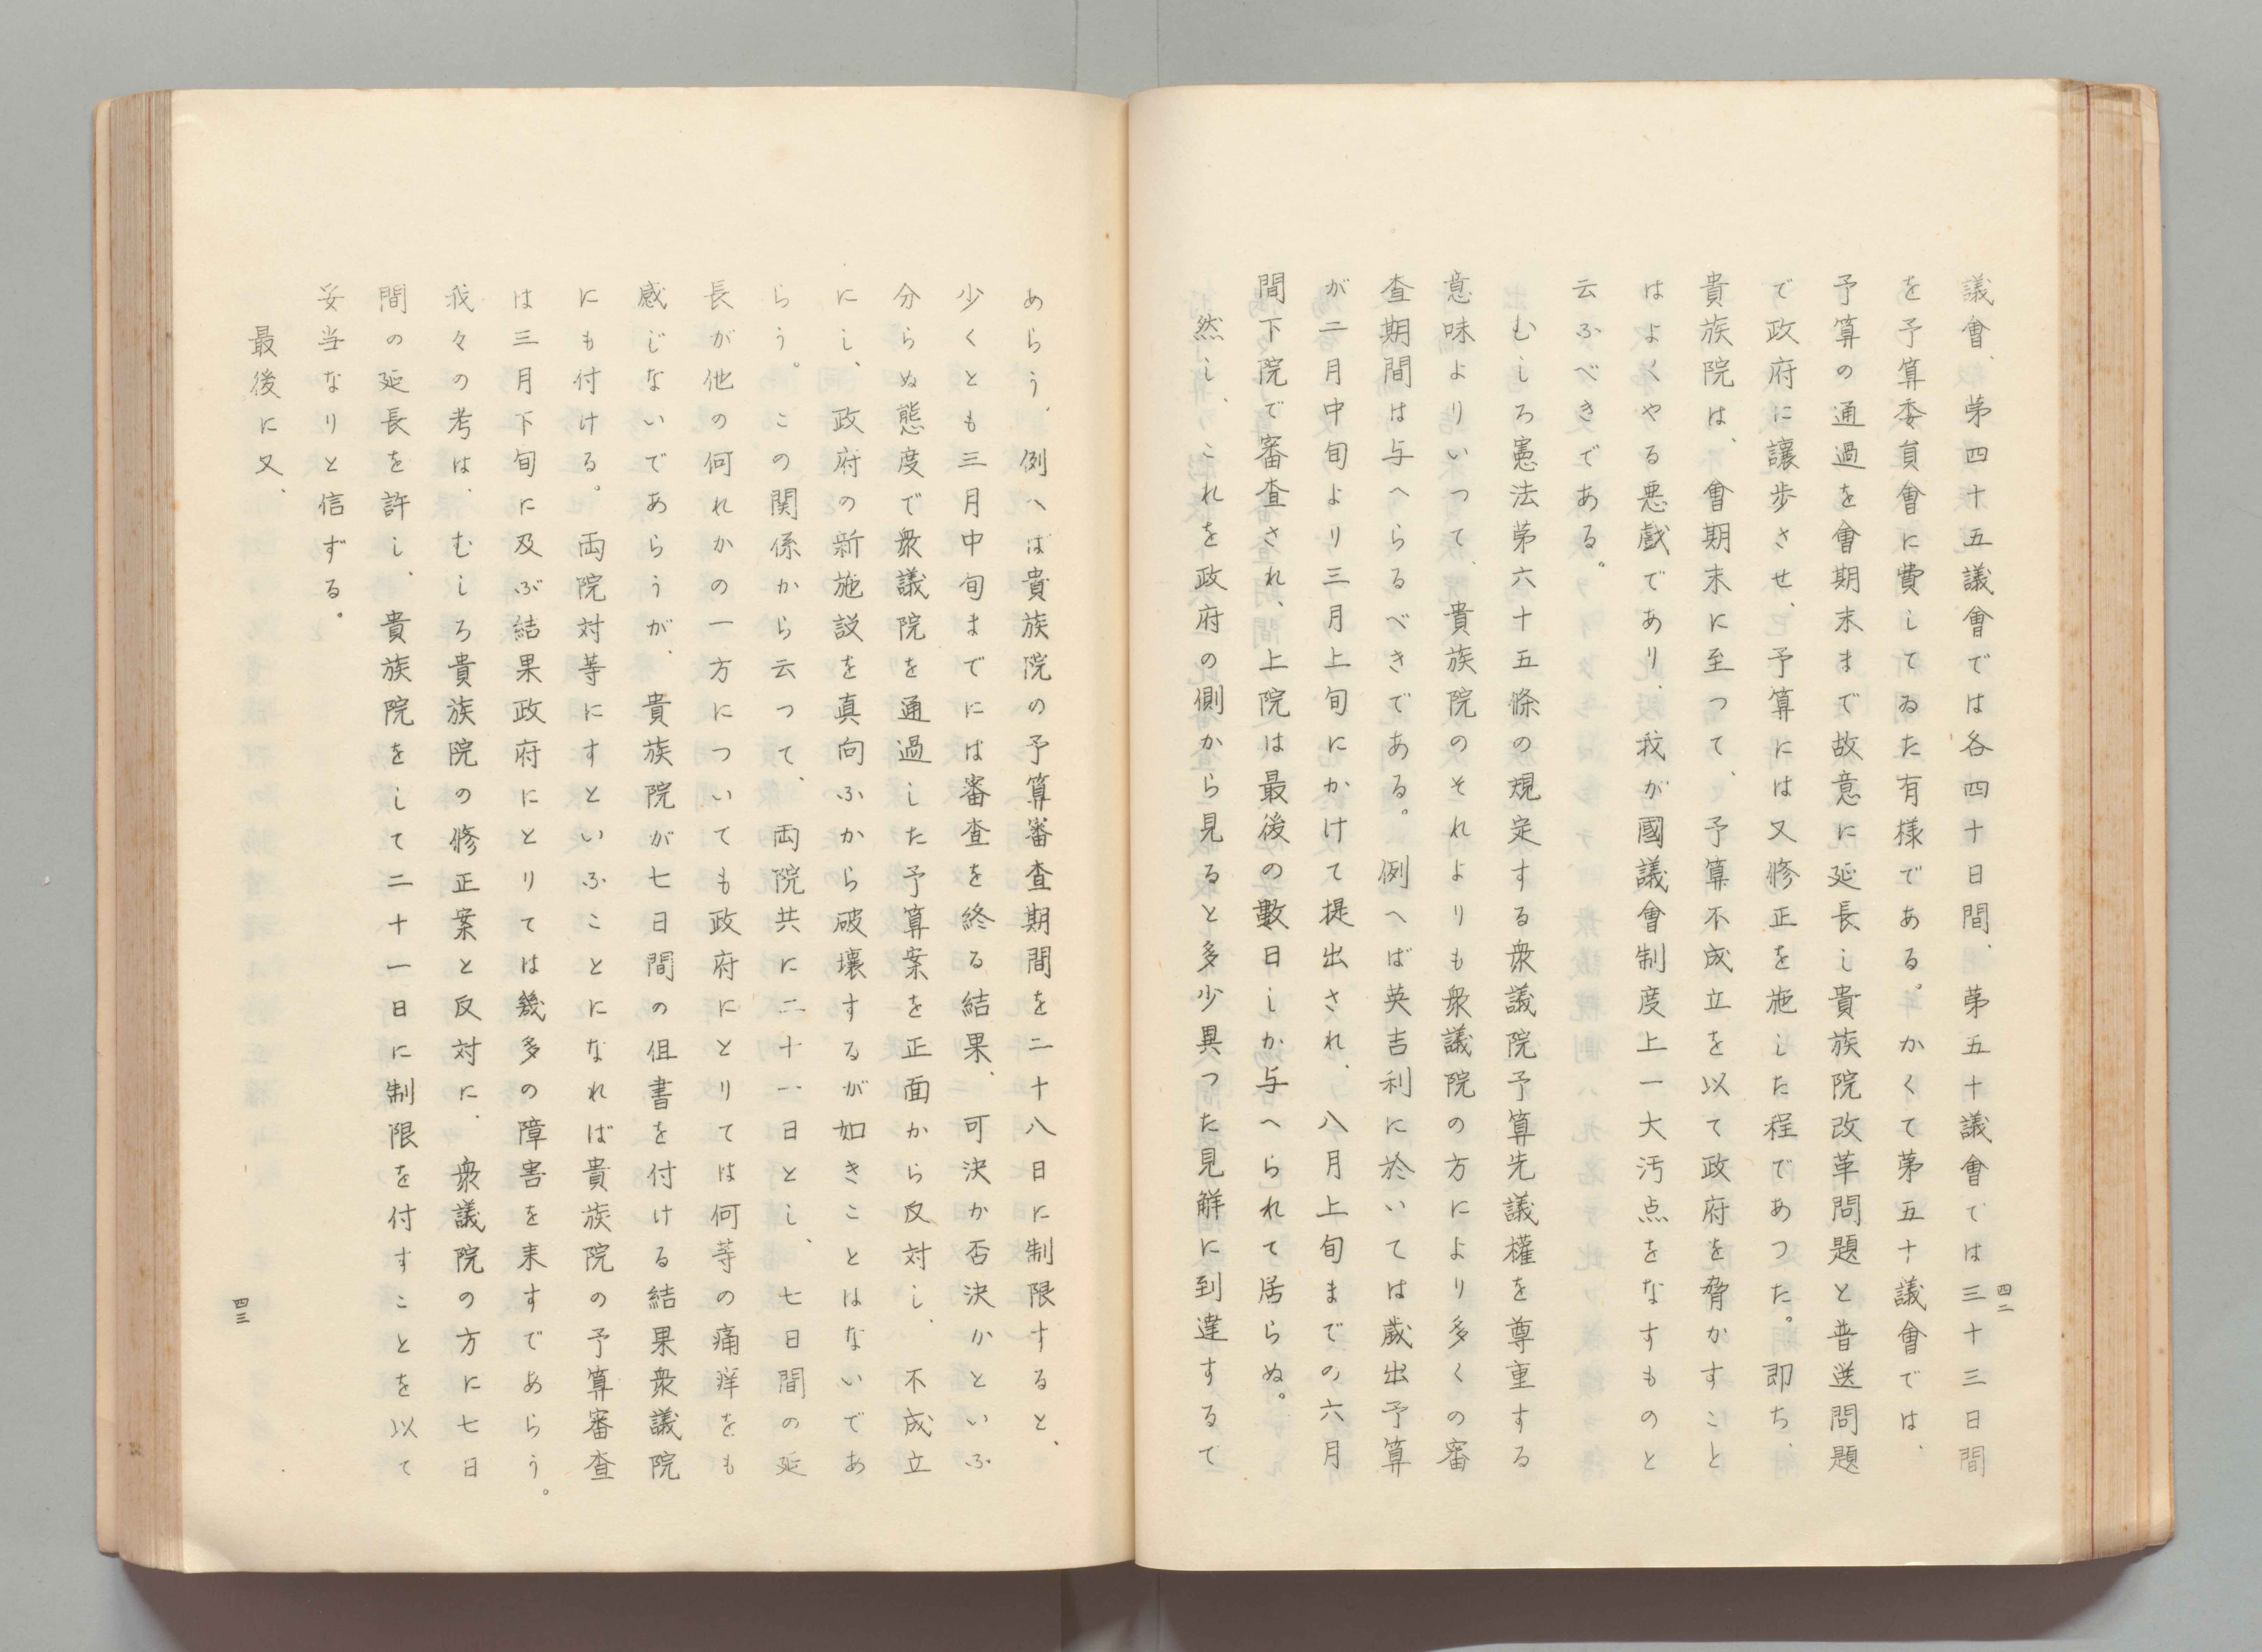 議會、第四十五議會では各四十日間、第五十議會では三十三日間
を予算委員會に費してゐた有様である。かくて第五十議會では、
予算の通過を會期末まで故意に延長し貴族院改革問題と普選問題
で政府に讓歩させ、予算には又修正を施した程であつた。即ち、
貴族院は、會期末に至つて、予算不成立を以て政府を脅かすこと
はよくやる悪戯であり、我が國議會制度上一大汚点をなすものと
云ふべきである。
むしろ憲法第六十五條の規定する衆議院予算先議權を尊重する
意味よりいつて、貴族院のそれよりも衆議院の方により多くの審
査期間は与へらるべきである。例へば英吉利に於いては歳出予算
が二月中旬より三月上旬にかけて提出され、八月上旬までの六月
間下院で審査され、上院は最後の數日しか与へられて居らぬ。
然し、これを政府の側から見ると多少異つた見解に到達するで
四二
あらう、例へば貴族院の予算審査期間を二十八日に制限すると、
少くとも三月中旬までには審査を終る結果、可決か否決かといふ
分らぬ態度で衆議院を通過した予算案を正面から反対し、不成立
にし、政府の新施設を真向ふから破壊するが如きことはないであ
らう。この関係から云つて、両院共に二十一日とし、七日間の延
長が他の何れかの一方についても政府にとりては何等の痛痒をも
感じないであらうが、貴族院が七日間の但書を付ける結果衆議院
にも付ける。両院対等にすといふことになれば貴族院の予算審査
は三月下旬に及ぶ結果政府にとりては幾多の障害を来すであらう。
我々の考は、むしろ貴族院の修正案と反対に、衆議院の方に七日
間の延長を許し、貴族院をして二十一日に制限を付すことを以て
妥当なりと信ずる。
最後に又、
四三